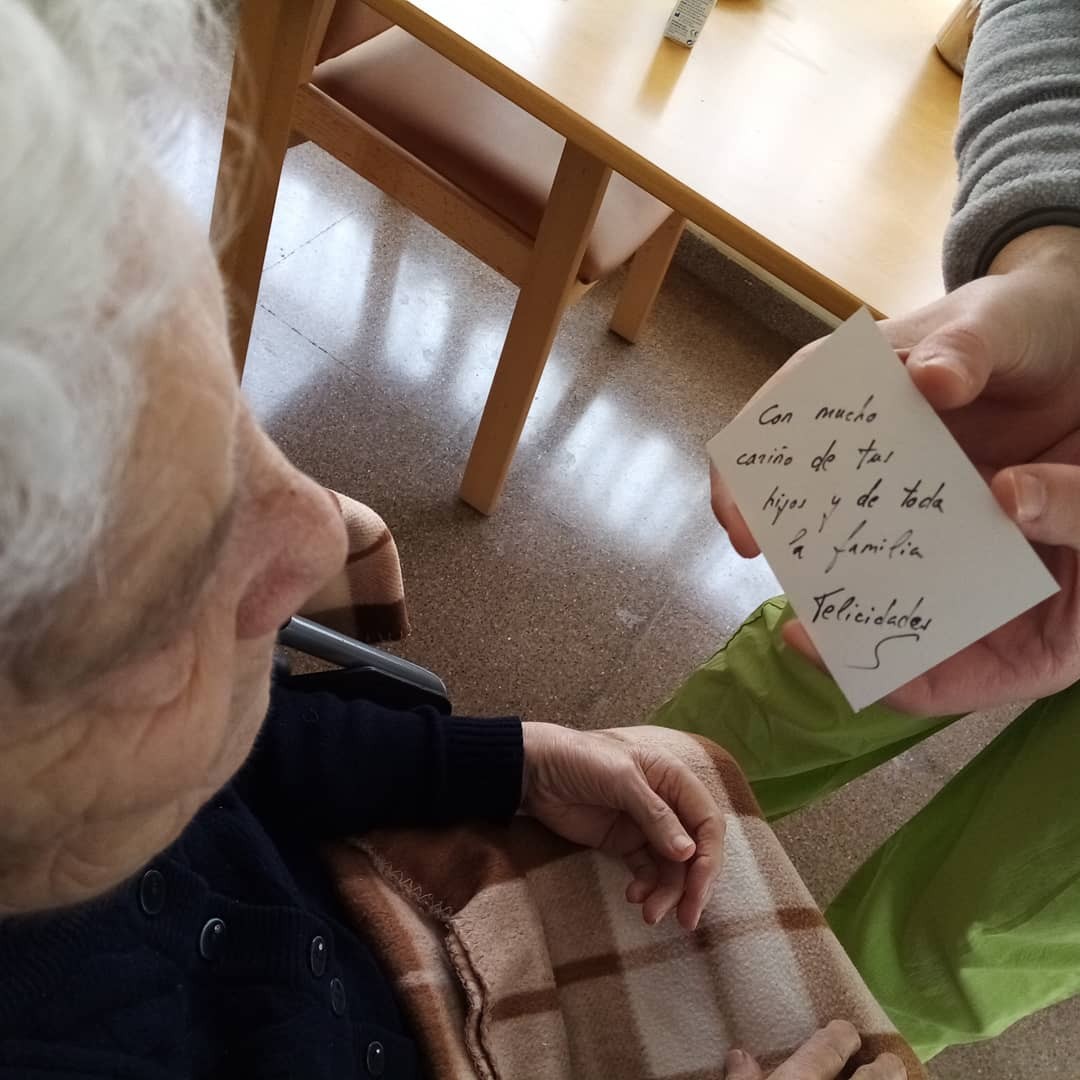 Con mucho
cariño de tus
hijos y de toda
la familia
Felicidades